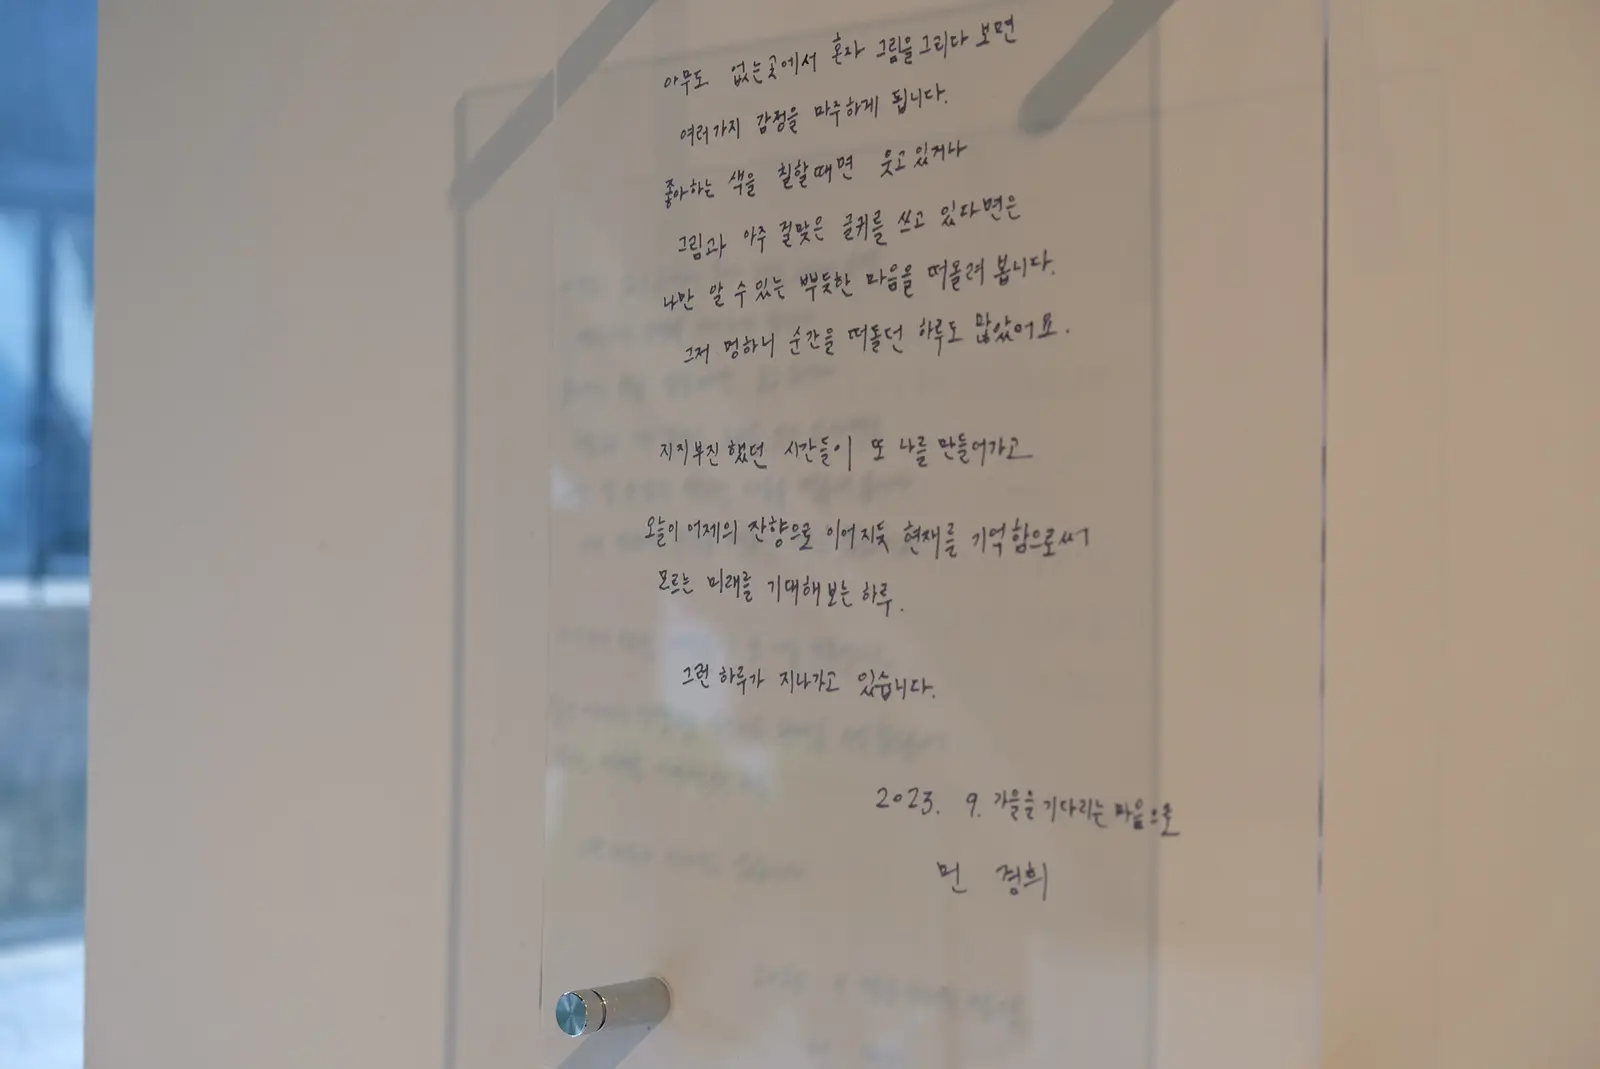 아무도 없는곳에서 혼자 그림을그리다 보면
여러가지 감정을 마주하게 됩니다.
좋아하는 색을 칠할때면 웃고있거나
그림과 아주 걸맞은 글귀를 쓰고 있다면은
나만 알 수 있는 뿌듯한 마음을 떠올려 봅니다.
그저 멍하니 순간을 떠돌던 하루도 많았어요.
지지부진했던 시간들이 또 나를 만들어가고
오늘이 어제의 잔향으로 이어지듯 현재를 기억함으로써
모르는 미래를 기대해보는 하루.
그런 하루가 지나가고 있습니다.
2023. 9. 가을을 기다리는 마음으로
민 경희